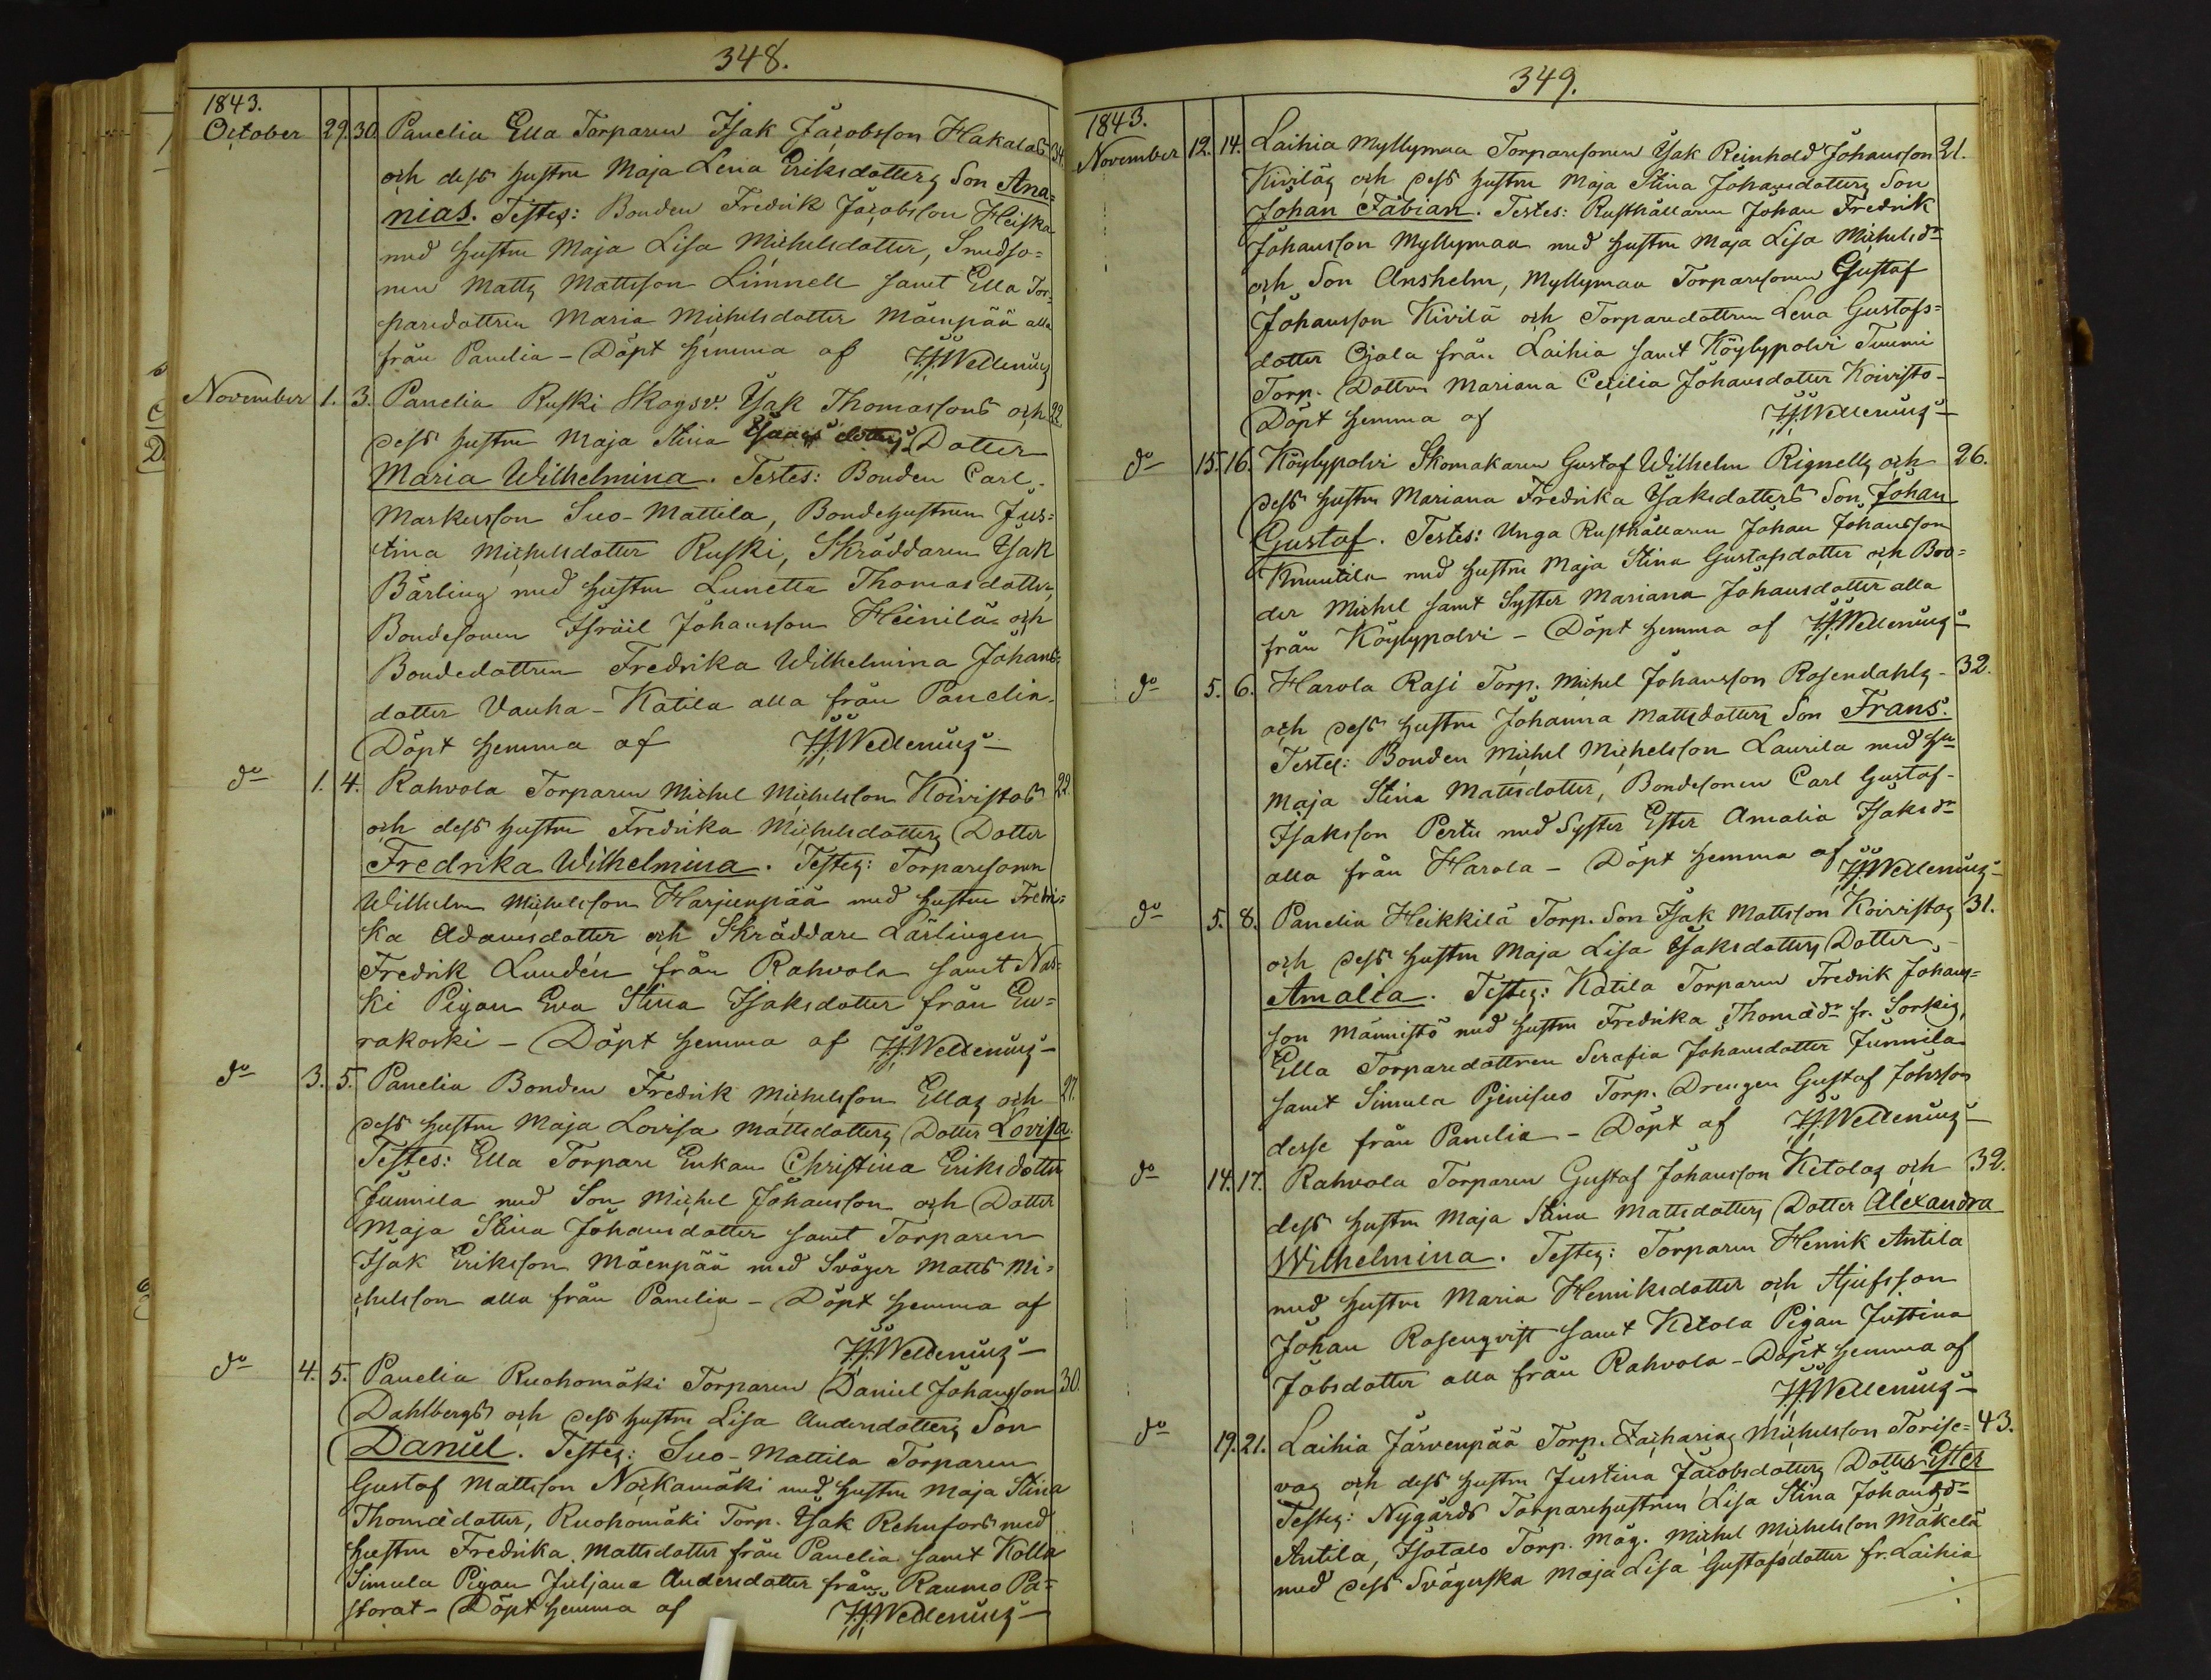 348.
1843.
October 29. 30. Panelia Ella Torparen Isak Jacobsson Hakalas 34.
och dess hustru Maja Lena Eriksdotters Son Ana=
nias. Testes: Bonden Fredrik Jacobsson Heiska
med hustru Maja Lisa Michelsdotter, Smedso=
nen Matts Mattsson Linnell samt Ella Tor=
paredottren Maria Michelsdotter Mäenpää alla
från Panelia – Döpt hemma af J.J. Wellenius
November 1. 3. Panelia Ruski Skogsv. Isak Thomassons och 22
dess hustru Maja Stina Isaacs dotters Dotter
Maria Wilhelmina. Testes: Bonden Carl
Markusson Suo-Mattila, Bondehustrun Jus=
tina Michelsdotter Ruski, Skräddaren Isak
Bärling med hustru Lunetta Thomasdotter,
Bondesonen Israil Johansson Heinilä och
Bondedottren Fredrika Wilhelmina Johans=
dotter Vanha-Katila alla från Panelia.
Döpt hemma af J.J. Wellenius –
do 1. 4. Rahvola Torparen Michel Michelsson Koivistos 22.
och dess hustru Fredrika Michelsdotters Dotter
Fredrika Wilhelmina. Testes: Torparesonen
Wilhelm Michelsson Harjunpää med hustru Fredri=
ka Adamsdotter och Skräddare Lärlingen
Fredrik Lundén från Rahvola samt Nas=
ki Pigan Eva Stina Isaksdotter från Eu=
rakoski – Döpt hemma af J.J. Wellenius –
do 3. 5. Panelia Bonden Fredrik Michelsson Ellas och 27.
dess hustru Maja Lovisa Mattsdotters Dotter Lovisa.
Testes: Ella Torpare Enkan Christina Eriksdotter
Junnila med Son Michel Johansson och Dotter
Maja Stina Johansdotter samt Torparen
Isak Eriksson Mäenpää med Svåger Matts Mi=
chelsson alla från Panelia – Döpt hemma af
J.J. Wellenius –
do 4. 5. Panelia Ruohomäki Torparen Daniel Johansson 30.
Dahlbergs och dess hustru Lisa Andersdotters Son
Daniel. Testes: Suo-Mattila Torparen
Gustaf Mattsson Nockamäki med hustru Maja Stina
Thomædotter, Ruohomäki Torp. Isak Rehnfors med
hustru Fredrika Mattsdotter från Panelia samt Kolla
Simula Pigan Juljana Andersdotter från Raumo Pa=
storat – Döpt hemma af J.J. Wellenius –
349.
1843.
November 12. 14. Laihia Myllymaa Torparesonen Isak Reinhold Johansson 21.
Kiviläs och dess hustru Maja Stina Johansdotters Son
Johan Fabian. Testes: Rusthållaren Johan Fredrik
Johansson Myllymaa med hustru Maja Lisa Michelsdr
och Son Anshelm, Myllymaa Torparesonen Gustaf
Johansson Kivilä och Torparedottren Lena Gustafs=
dotter Ojala från Laihia samt Köylypolvi Tuumi
Torp. Dottren Mariana Cecilia Johansdotter Koivisto –
Döpt hemma af J.J. Wellenius –
do 15. 16. Köylypolvi Skomakaren Gustaf Wilhelm Rignells och 26.
dess hustru Mariana Fredrika Isaksdotters Son Johan
Gustaf. Testes: Unga Rusthållaren Johan Johansson
Knuutila med hustru Maja Stina Gustafsdotter och Bro=
der Michel samt Syster Mariana Johansdotter alla
från Köylypolvi – Döpt hemma af J.J. Wellenius –
do 5. 6. Harola Rasi Torp. Michel Johansson Rosendahls – 32.
och dess hustru Johanna Mattsdotters Son Frans.
Testes: Bonden Michel Michelsson Laurila med hu
Maja Stina Mattsdotter, Bondesonen Carl Gustaf –
Isaksson Pertu med Syster Ester Amalia Isaksdr
alla från Harola – Döpt hemma af J.J. Wellenius –
do 5. 8. Panelia Heikkilä Torp. Son Isak Mattsson Koivistos 31.
och dess hustru Maja Lisa Isaksdotters Dotter –
Amalia. Testes: Katila Torparen Fredrik Johans=
son Männistö med hustru Fredrika Thomædr fr. Sorkis,
Ella Torparedottren Serafia Johansdotter Junnila
samt Simula Torp. Drengen Gustaf Johsson
desse från Panelia – Döpt af J.J. Wellenius –
do 14. 17. Rahvola Torparen Gustaf Johansson Ketolas och 32.
dess hustru Maja Stina Mattsdotters Dotter Alexandra
Wilhelmina. Testes: Torparen Henrik Antila
med hustru Maria Henriksdotter och Stjufsson
Johan Rosenqvist samt Ketola Pigan Justina
Jobsdotter alla från Rahvola – Döpt hemma af
J.J. Wellenius –
do 19. 21. Laihia Järvenpää Torp. Zacharias Michelsson Torise= 43.
vas och dess hustru Justina Jacobsdotters Dotter Ester
Testes: Nygårds Torparehustrun Lisa Stina Johansdr
Antila, Isotalo Torp. Måg. Michel Michelsson Mäkelä
med dess Svägerska Maja Lisa Gustafsdotter fr. Laihia